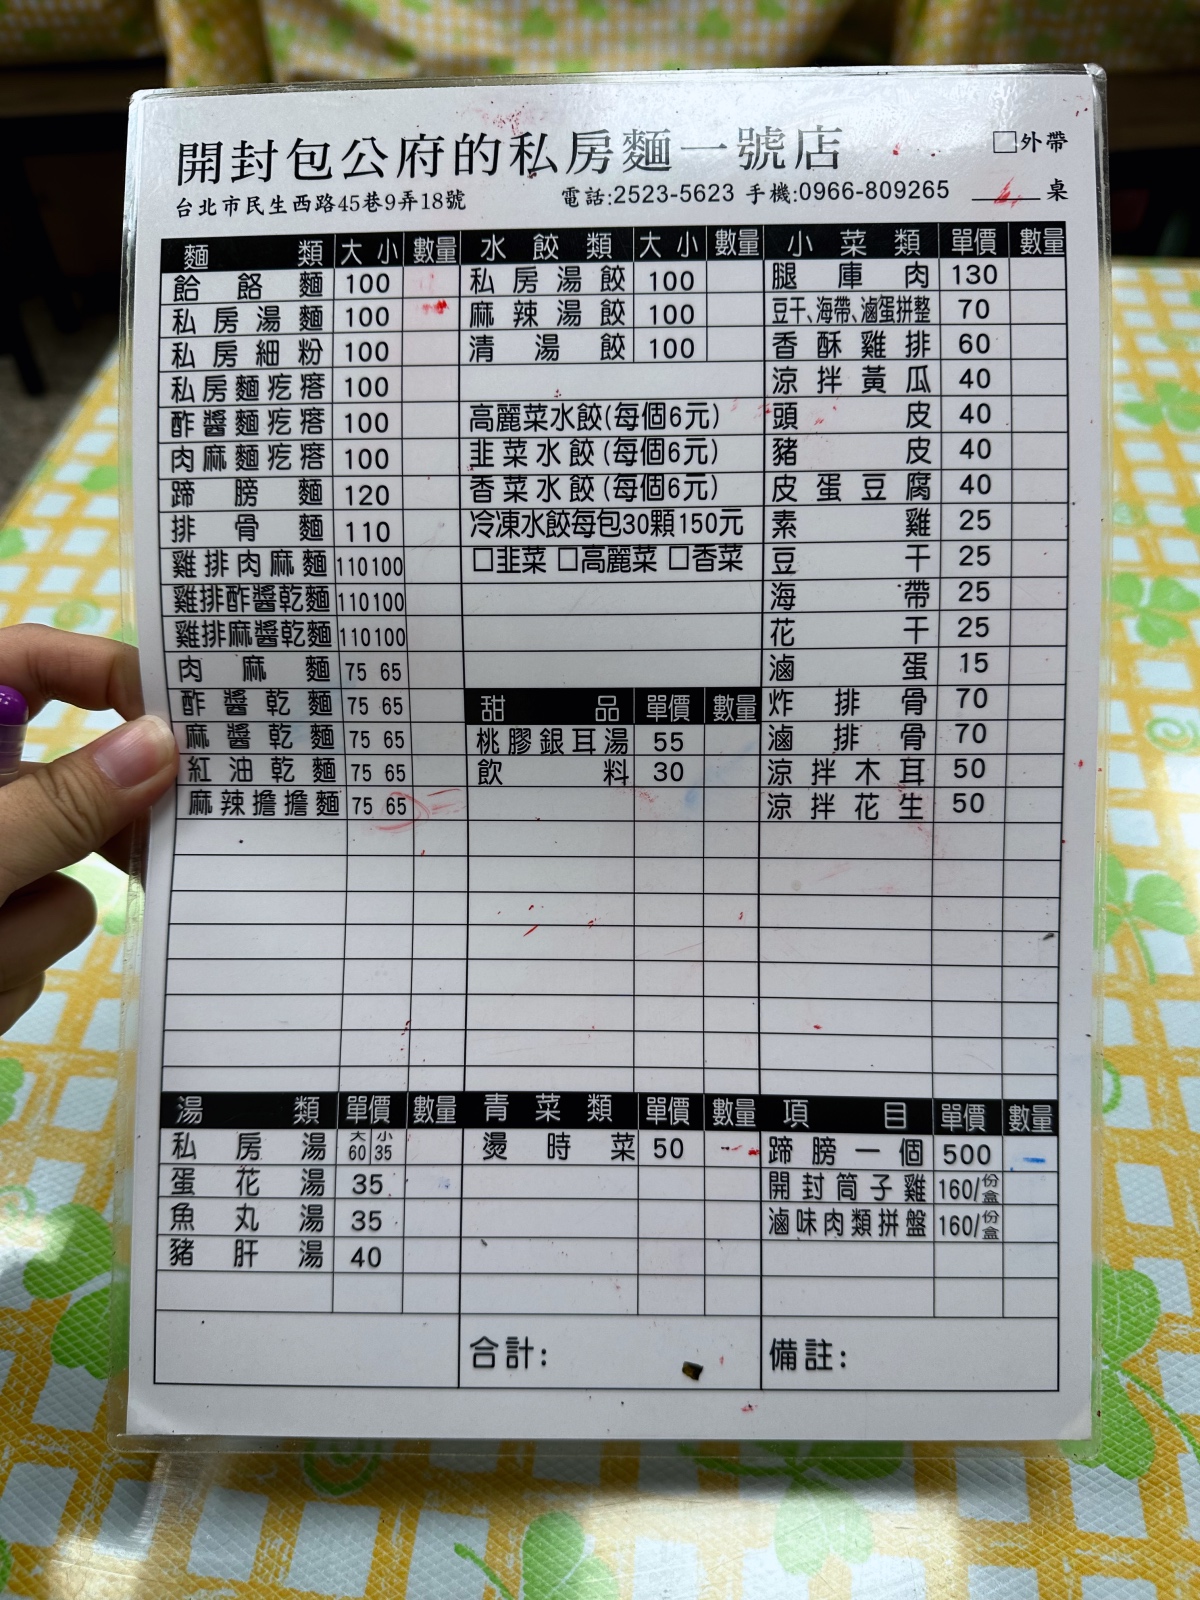 開封包公府的私房麵一號店
□外帶
台北市民生西路45巷9弄18號 電話:2523-5623 手機:0966-809265 桌
麵類 大 小 數量
餄餎麵 100
私房湯麵 100
私房細粉 100
私房麵疙瘩 100
酢醬麵疙瘩 100
肉麻麵疙瘩 100
蹄膀麵 120
排骨麵 110
雞排肉麻麵 110 100
雞排酢醬乾麵 110 100
雞排麻醬乾麵 110 100
肉麻麵 75 65
酢醬乾麵 75 65
麻醬乾麵 75 65
紅油乾麵 75 65
麻辣擔擔麵 75 65
水餃類 大 小 數量
私房湯餃 100
麻辣湯餃 100
清湯餃 100
高麗菜水餃(每個6元)
韭菜水餃(每個6元)
香菜水餃(每個6元)
冷凍水餃每包30顆150元
□韭菜 □高麗菜 □香菜
甜品 單價 數量
桃膠銀耳湯 55
飲料 30
小菜類 單價 數量
腿庫肉 130
豆干、海帶、滷蛋拼整 70
香酥雞排 60
涼拌黃瓜 40
頭皮 40
豬皮 40
皮蛋豆腐 40
素雞 25
豆干 25
海帶 25
花干 25
滷蛋 15
炸排骨 70
滷排骨 70
涼拌木耳 50
涼拌花生 50
湯類 單價 數量
私房湯 大60 小35
蛋花湯 35
魚丸湯 35
豬肝湯 40
青菜類 單價 數量
燙時菜 50
項目 單價 數量
蹄膀一個 500
開封筒子雞 160/份盒
滷味肉類拼盤 160/份盒
合計:
備註: